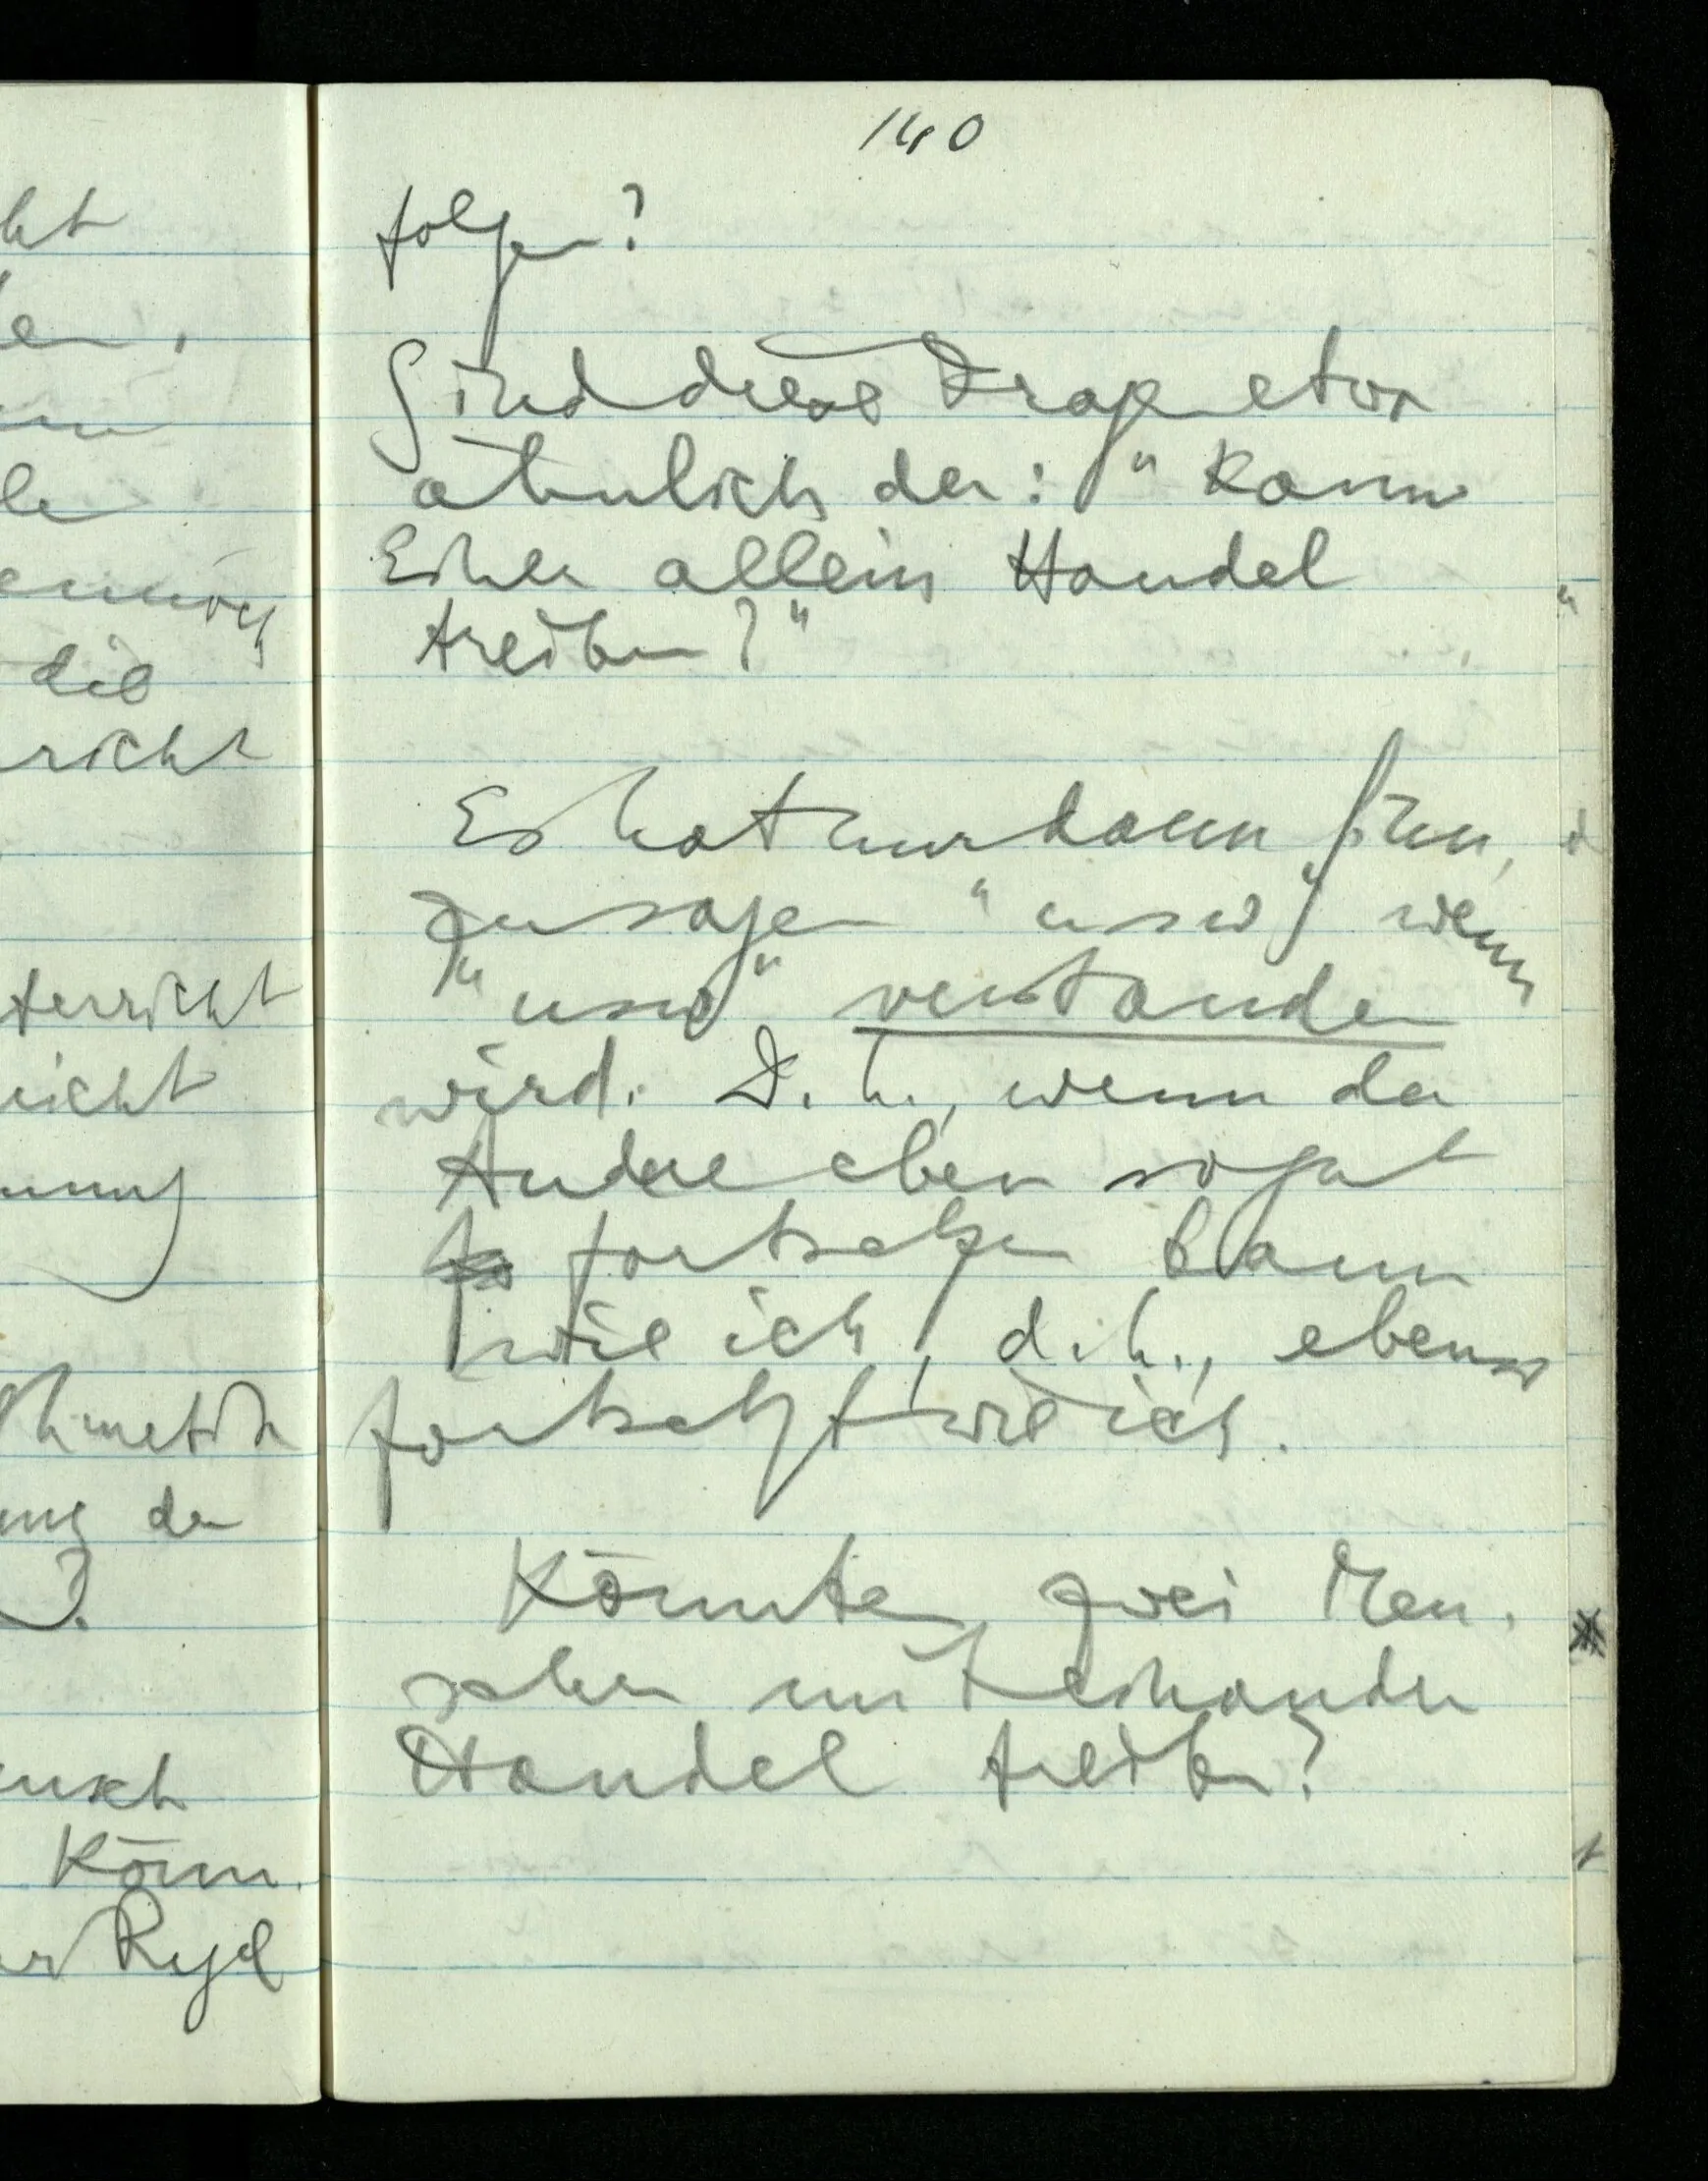 140
folgen?
Sind diese Fragen etwa
ähnlich der: "Kann
Einer allein Handel
treiben?"
Es hat nur dann Sinn,
zu sagen "usw", wenn
"usw" verstanden
wird. D.h., wenn der
Andre eben so gut
fortsetzen kann
wie ich, d.h., ebenso
fortsetzt wie ich.
Könnten zwei Men-
schen miteinander
Handel treiben?
die
richt
terricht
eicht
ung der
Könn-
Regel